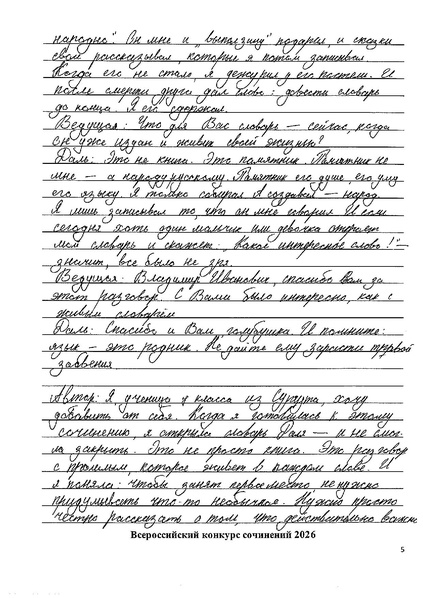 народно". Он мне и „выползину" подарил, и сказки
свои рассказывал, которые я потом записывал.
Когда его не стало, я дежурил у его постели. И
после смерти друга дал слово: довести словарь
до конца. Я его сдержал.
Ведущая: Что для Вас словарь — сейчас, когда
он уже издан и живёт своей жизнью?
Даль: Это не книга. Это памятник. Памятник не
мне — а народу русскому. Памятник его душе, его уму,
его языку. Я только собирал. А создавал — народ.
Я лишь записывал то, что он мне говорил. И если
сегодня хоть один мальчик или девочка откроет
мой словарь и скажет: „Какое интересное слово!" —
значит, всё было не зря.
Ведущая: Владимир Иванович, спасибо Вам за
этот разговор. С Вами было интересно, как с
живым словарём.
Даль: Спасибо и Вам, голубушка. И помните:
язык — это родник. Не дайте ему зарасти травой
забвения.
Автор: Я, ученица класса из хочу
добавить от себя. Когда я готовилась к этому
сочинению, я открыла словарь Даля — и не смог-
ла закрыть. Это не просто книга. Это разговор
с прошлым, которое живёт в каждом слове. И
я поняла: чтобы занять первое место, не нужно
придумывать что-то необычное. Нужно просто
честно рассказать о том, что действительно важно
Всероссийский конкурс сочинений 2026
5